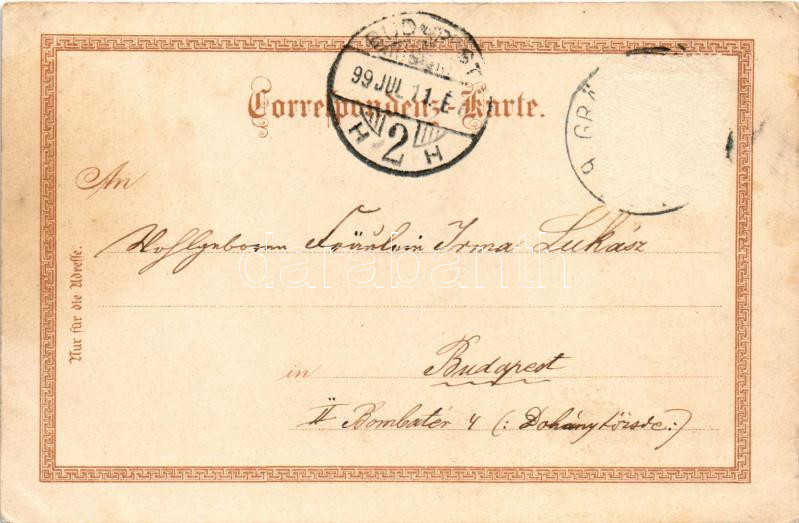 BUDAPEST
99 JUL. 11. E
H 2 H
9 GRÄ
Correspondenz-Karte.
An
Wohlgeboren Fräulein Irma Lukász
darabanth
in Budapest
II Bombatér 4 (: Dohánytőzsde:)
Nur für die Adresse.